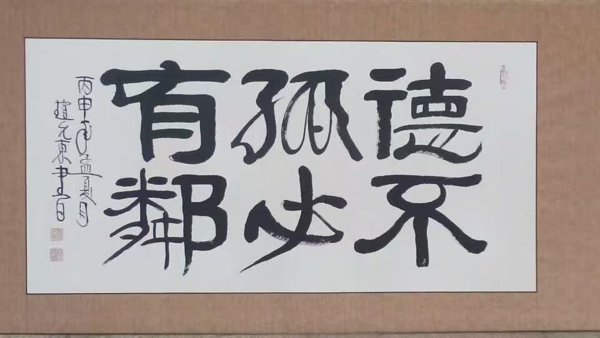 德不
孤必
有鄰
丙申年孟夏月
趙允東書